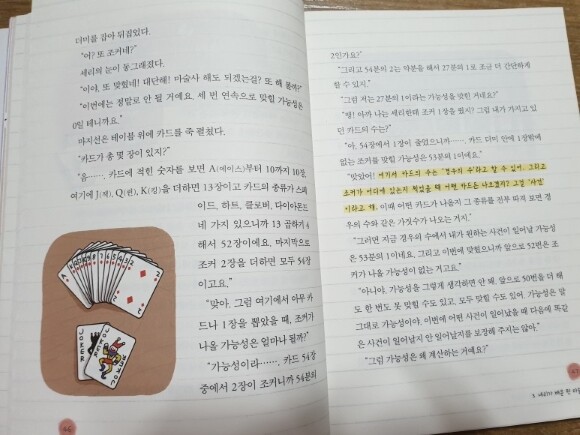 더미를 잡아 뒤집었다.
"어? 또 조커네?"
세리의 눈이 동그래졌다.
"이야, 또 맞혔네! 대단해! 마술사 해도 되겠는걸? 또 해 볼까?"
"이번에는 정말로 안 될 거예요. 세 번 연속으로 맞힐 가능성은
0일 테니까요."
마지션은 테이블 위에 카드를 죽 펼쳤다.
"카드가 총 몇 장이 있지?"
"음……. 카드에 적힌 숫자를 보면 A(에이스)부터 10까지 10장,
여기에 J(잭), Q(퀸), K(킹)을 더하면 13장이고 카드의 종류가 스페
이드, 하트, 클로버, 다이아몬드
네 가지 있으니까 13 곱하기 4
해서 52장이에요. 마지막으로
조커 2장을 더하면 모두 54장
이고요."
"맞아. 그럼 여기에서 아무 카
드나 1장을 뽑았을 때, 조커가
나올 가능성은 얼마나 될까?"
"가능성이라……. 카드 54장
중에서 2장이 조커니까 54분의
JOKER
JOKER
46
2인가요?"
"그리고 54분의 2는 약분을 해서 27분의 1로 조금 더 간단하게
할 수 있지."
"그럼 저는 27분의 1이라는 가능성을 맞힌 거네요?"
"땡! 아까 나는 세리한테 조커 1장을 줬지? 그럼 내가 가지고 있
던 카드의 수는?"
"아, 54장에서 1장이 줄었으니까……. 카드 더미 안에 1장밖에
없는 조커를 맞힐 가능성은 53분의 1이에요."
"맞았어! 여기서 카드의 수는 '경우의 수'라고 할 수 있어. 그리고
조커가 어디에 있는지 찍었을 때 어떤 카드든 나오겠지? 그걸 '사건'
이라고 해. 이때 어떤 카드가 나올지 그 종류를 전부 따져 보면 경
우의 수와 같은 가짓수가 나오는 거지."
"그러면 지금 경우의 수에서 내가 원하는 사건이 일어날 가능성
은 53분의 1이네요. 그리고 이번에 맞혔으니까 앞으로 52번은 조
커가 나올 가능성이 없는 거고요."
"아니야. 가능성을 그렇게 생각하면 안 돼. 앞으로 50번을 더 해
도 한 번도 못 맞힐 수도 있고, 모두 맞힐 수도 있어. 가능성은 말
그대로 가능성이야. 이번에 어떤 사건이 일어났을 때 다음에 똑같
은 사건이 일어날지 안 일어날지를 보장해 주지는 않아."
"그럼 가능성은 왜 계산하는 거예요?"